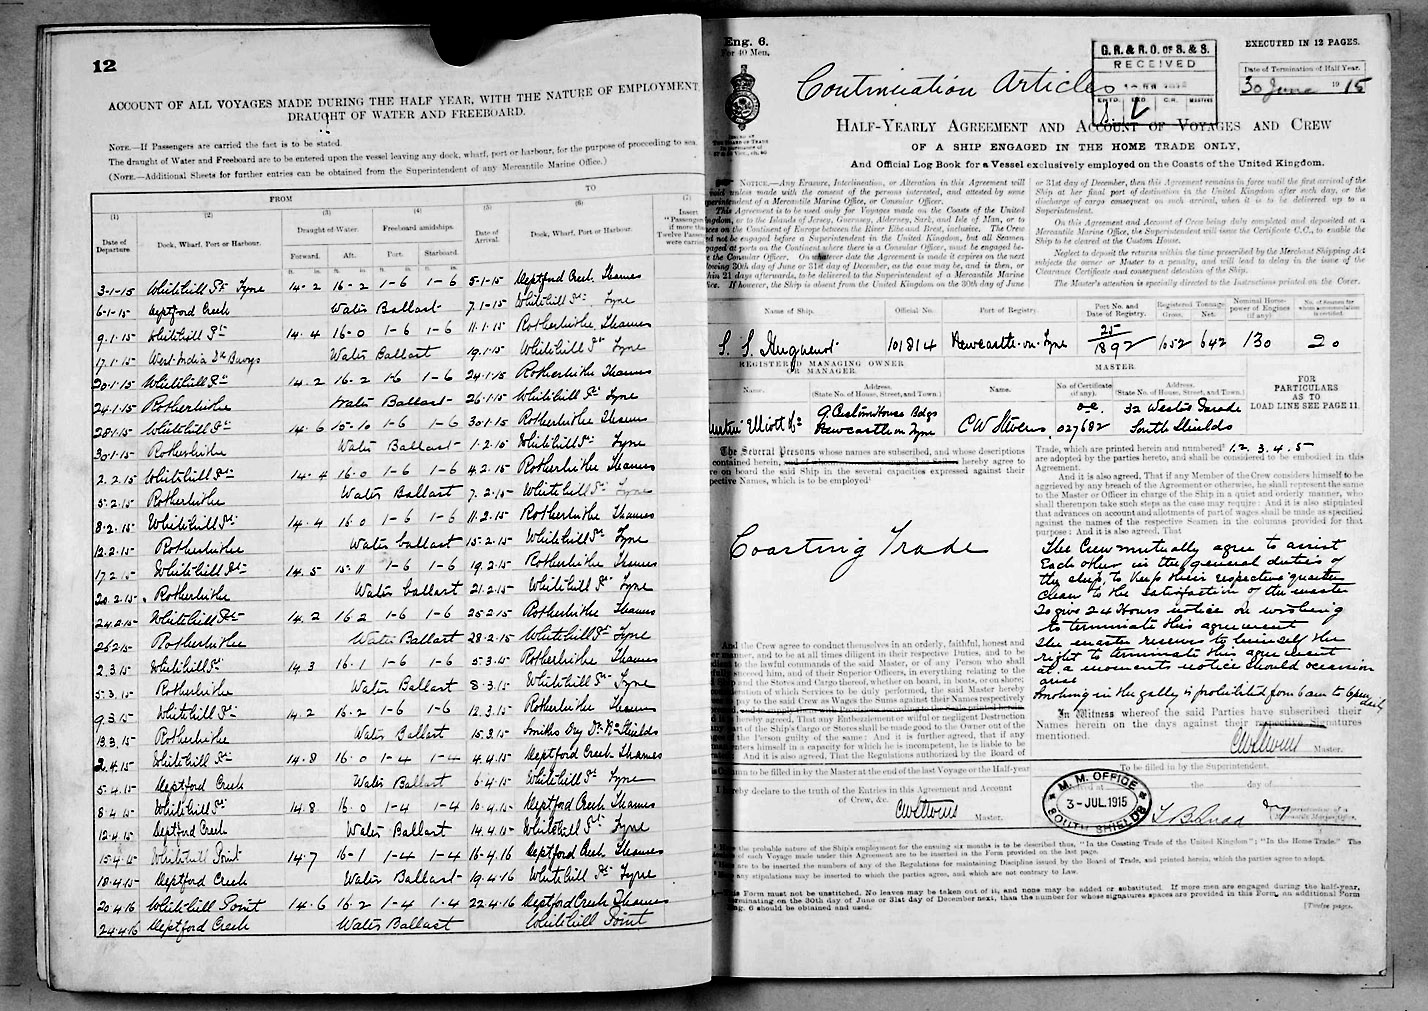 12
ACCOUNT OF ALL VOYAGES MADE DURING THE HALF YEAR, WITH THE NATURE OF EMPLOYMENT
DRAUGHT OF WATER AND FREEBOARD.
NOTE.—If Passengers are carried the fact is to be stated.
The draught of Water and Freeboard are to be entered upon the vessel leaving any dock, wharf, port or harbour, for the purpose of proceeding to sea.
(NOTE.—Additional Sheets for further entries can be obtained from the Superintendent of any Mercantile Marine Office.)
FROM TO
(1) (2) (3) (4) (5) (6) (7)
Date of Departure. Dock, Wharf, Port or Harbour. Draught of Water. Freeboard amidships. Date of Arrival. Dock, Wharf, Port or Harbour.
Forward. Aft. Port. Starboard.
ft. in. ft. in. ft. in. ft. in.
3-1-15 Whitehill Pt Tyne 14-2 16-2 1-6 1-6 5-1-15 Deptford Creek Thames
6-1-15 Deptford Creek Water Ballast 7-1-15 Whitehill Pt Tyne
9-1-15 Whitehill Pt 14-4 16-0 1-6 1-6 11-1-15 Rotherhithe Thames
17-1-15 West India Dk Buoys Water Ballast 19-1-15 Whitehill Pt Tyne
20-1-15 Whitehill Pt 14-2 16-2 1-6 1-6 24-1-15 Rotherhithe Thames
24-1-15 Rotherhithe Water Ballast 26-1-15 Whitehill Pt Tyne
28-1-15 Whitehill Pt 14-6 15-10 1-6 1-6 30-1-15 Rotherhithe Thames
30-1-15 Rotherhithe Water Ballast 1-2-15 Whitehill Pt Tyne
2-2-15 Whitehill Pt 14-4 16-0 1-6 1-6 4-2-15 Rotherhithe Thames
5-2-15 Rotherhithe Water Ballast 7-2-15 Whitehill Pt Tyne
8-2-15 Whitehill Pt 14-4 16-0 1-6 1-6 11-2-15 Rotherhithe Thames
12-2-15 Rotherhithe Water ballast 15-2-15 Whitehill Pt Tyne
17-2-15 Whitehill Pt 14-5 15-11 1-6 1-6 19-2-15 Rotherhithe Thames
20-2-15 Rotherhithe Water ballast 21-2-15 Whitehill Pt Tyne
24-2-15 Whitehill Pt 14-2 16-2 1-6 1-6 25-2-15 Rotherhithe Thames
26-2-15 Rotherhithe Water Ballast 28-2-15 Whitehill Pt Tyne
2-3-15 Whitehill Pt 14-3 16-1 1-6 1-6 5-3-15 Rotherhithe Thames
5-3-15 Rotherhithe Water Ballast 8-3-15 Whitehill Pt Tyne
9-3-15 Whitehill Pt 14-2 16-2 1-6 1-6 12-3-15 Rotherhithe Thames
13-3-15 Rotherhithe Water Ballast 15-3-15 Smiths Dry Dk No Shields
2-4-15 Whitehill Pt 14-8 16-0 1-4 1-4 4-4-15 Deptford Creek Thames
5-4-15 Deptford Creek Water Ballast 6-4-15 Whitehill Pt Tyne
8-4-15 Whitehill Pt 14-8 16-0 1-4 1-4 10-4-15 Deptford Creek Thames
12-4-15 Deptford Creek Water Ballast 14-4-15 Whitehill Pt Tyne
15-4-15 Whitehill Point 14-7 16-1 1-4 1-4 16-4-16 Deptford Creek Thames
18-4-15 Deptford Creek Water Ballast 19-4-16 Whitehill Pt Tyne
20-4-16 Whitehill Point 14-6 16-2 1-4 1-4 22-4-16 Deptford Creek Thames
24-4-16 Deptford Creek Water Ballast Whitehill Point
Eng. 6.
For 40 Men.
G. R. & R. O. OF S. & S.
RECEIVED
EXECUTED IN 12 PAGES.
Date of Termination of Half Year.
30 June 1915
Continuation Articles
HALF-YEARLY AGREEMENT AND ACCOUNT OF VOYAGES AND CREW
OF A SHIP ENGAGED IN THE HOME TRADE ONLY,
And Official Log Book for a Vessel exclusively employed on the Coasts of the United Kingdom.
NOTICE.—Any Erasure, Interlineation, or Alteration in this Agreement will
unless made with the consent of the persons interested, and attested by some
Superintendent of a Mercantile Marine Office, or Consular Officer.
This Agreement is to be used only for Voyages made on the Coasts of the United
Kingdom, or to the Islands of Jersey, Guernsey, Alderney, Sark, and Isle of Man, or to
places on the Continent of Europe between the River Elbe and Brest, inclusive. The Crew
or 31st day of December, then this Agreement remains in force until the first arrival of the
Ship at her final port of destination in the United Kingdom after such day, or the
discharge of cargo consequent on such arrival, when it is to be delivered up to a
Superintendent.
On this Agreement and Account of Crew being duly completed and deposited at a
Mercantile Marine Office, the Superintendent will issue the Certificate C.C., to enable the
Ship to be cleared at the Custom House.
Neglect to deposit the returns within the time prescribed by the Merchant Shipping Act
subjects the owner or Master to a penalty, and will lead to delay in the issue of the
Clearance Certificate and consequent detention of the Ship.
The Master's attention is specially directed to the Instructions printed on the Cover.
Name of Ship. Official No. Port of Registry. Port No. and Date of Registry. Registered Tonnage Gross. Net. Nominal Horse-power of Engines (if any)
S. S. Huguenot 101814 Newcastle-on-Tyne 25/1892 1052 642 130 20
REGISTERED MANAGING OWNER OR MANAGER. MASTER.
Name. Address. (State No. of House, Street, and Town.) Name. No. of Certificate (if any). Address. (State No. of House, Street, and Town.)
Elliott & Co 9 Custom House Bdgs Newcastle on Tyne C W Stevens 027682 32 Westoe Parade South Shields
FOR PARTICULARS AS TO LOAD LINE SEE PAGE 11.
The Several Persons whose names are subscribed, and whose descriptions
contained herein, hereby agree to
on board the said Ship in the several capacities expressed against their
respective Names, which is to be employed
Coasting Trade
Trade, which are printed herein and numbered 1. 2. 3. 4. 5
are adopted by the parties hereto, and shall be considered to be embodied in this
Agreement.
And it is also agreed, That if any Member of the Crew considers himself to be
aggrieved by any breach of the Agreement or otherwise, he shall represent the same
to the Master or Officer in charge of the Ship in a quiet and orderly manner, who
shall thereupon take such steps as the case may require: And it is also stipulated
that advances on account and allotments of part of wages shall be made as specified
against the names of the respective Seamen in the columns provided for that
purpose: And it is also agreed, That
The Crew mutually agree to assist
Each other in the general duties of
the ship, to keep their respective quarters
clean to the satisfaction of the master
To give 24 Hours notice on wishing
to terminate this agreement
The master reserves to himself the
right to terminate this agreement
at a moments notice should occasion
arise
Smoking in the galley is prohibited from 6 am to 6 pm daily
And the Crew agree to conduct themselves in an orderly, faithful, honest and
manner, and to be at all times diligent in their respective Duties, and to be
to the lawful commands of the said Master, or of any Person who shall
succeed him, and of their Superior Officers, in everything relating to the
and the Stores and Cargo thereof, whether on board, in boats, or on shore;
consideration of which Services to be duly performed, the said Master hereby
pay to the said Crew as Wages the Sums against their Names respectively
hereby agreed, That any Embezzlement or wilful or negligent Destruction
part of the Ship's Cargo or Stores shall be made good to the Owner out of the
of the Person guilty of the same: And it is further agreed, that if any
enters himself in a capacity for which he is incompetent, he is liable to be
And it is also agreed, That the Regulations authorized by the Board of
In Witness whereof the said Parties have subscribed their
Names herein on the days against their respective signatures
mentioned.
CWStevens Master.
Column to be filled in by the Master at the end of the last Voyage or the Half-year
I hereby declare to the truth of the Entries in this Agreement and Account
of Crew, &c.
CWStevens Master.
To be filled in by the Superintendent.
the day of
M. M. OFFICE
3-JUL.1915
SOUTH SHIELDS
the probable nature of the Ship's employment for the ensuing six months is to be described thus, "In the Coasting Trade of the United Kingdom"; "In the Home Trade." The
of each Voyage made under this Agreement are to be inserted in the Form provided on the last page.
are to be inserted the numbers of any of the Regulations for maintaining Discipline issued by the Board of Trade, and printed herein, which the parties agree to adopt.
any stipulations may be inserted to which the parties agree, and which are not contrary to Law.
This Form must not be unstitched. No leaves may be taken out of it, and none may be added or substituted. If more men are engaged during the half-year,
terminating on the 30th day of June or 31st day of December next, than the number for whose signatures spaces are provided in this Form, an additional Form
Eng. 6 should be obtained and used.
[Twelve pages.